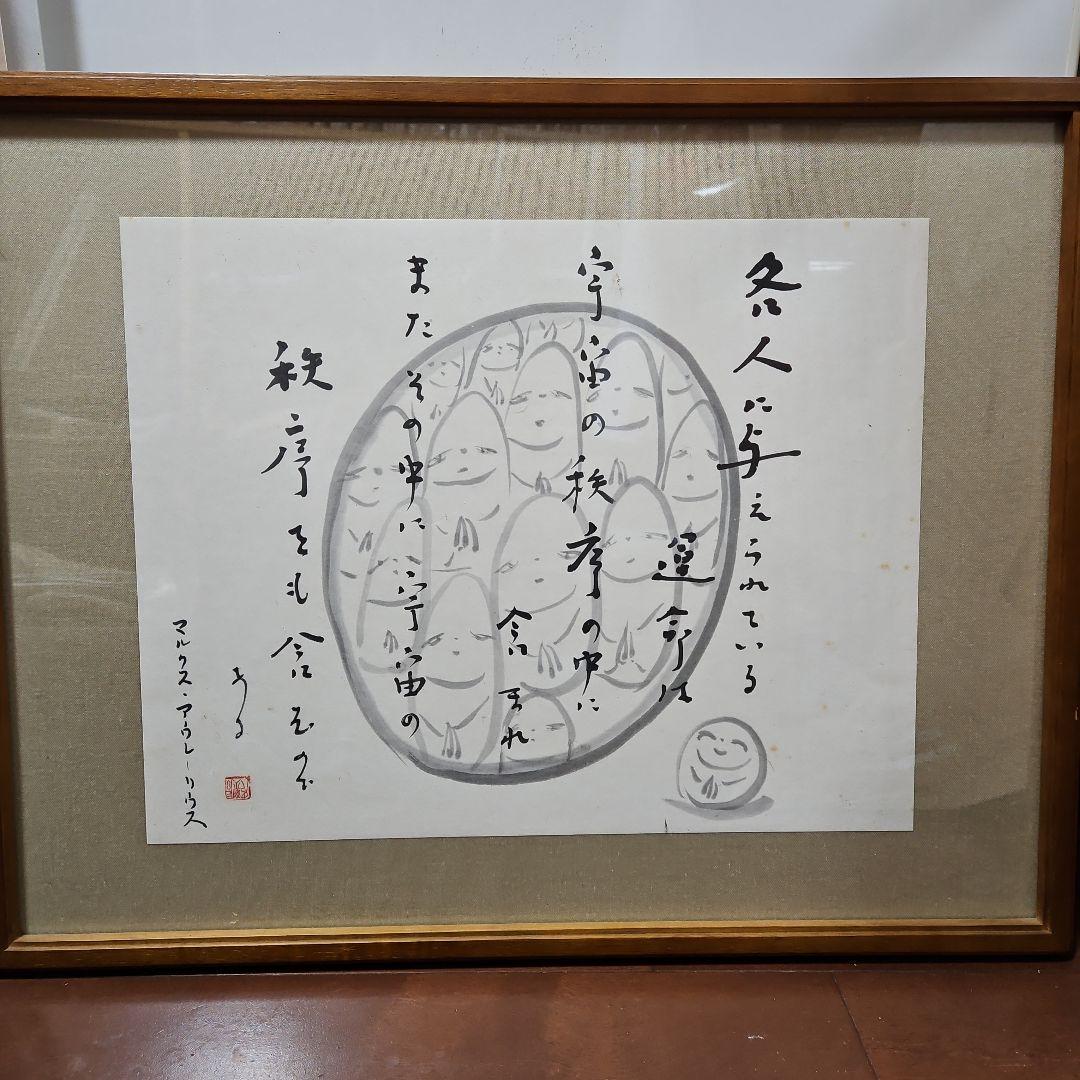 各人に与えられている
運命は
宇宙の秩序の中に
含まれ
またその中に宇宙の
秩序をも含むので
ある
マルクス・アウレーリウス